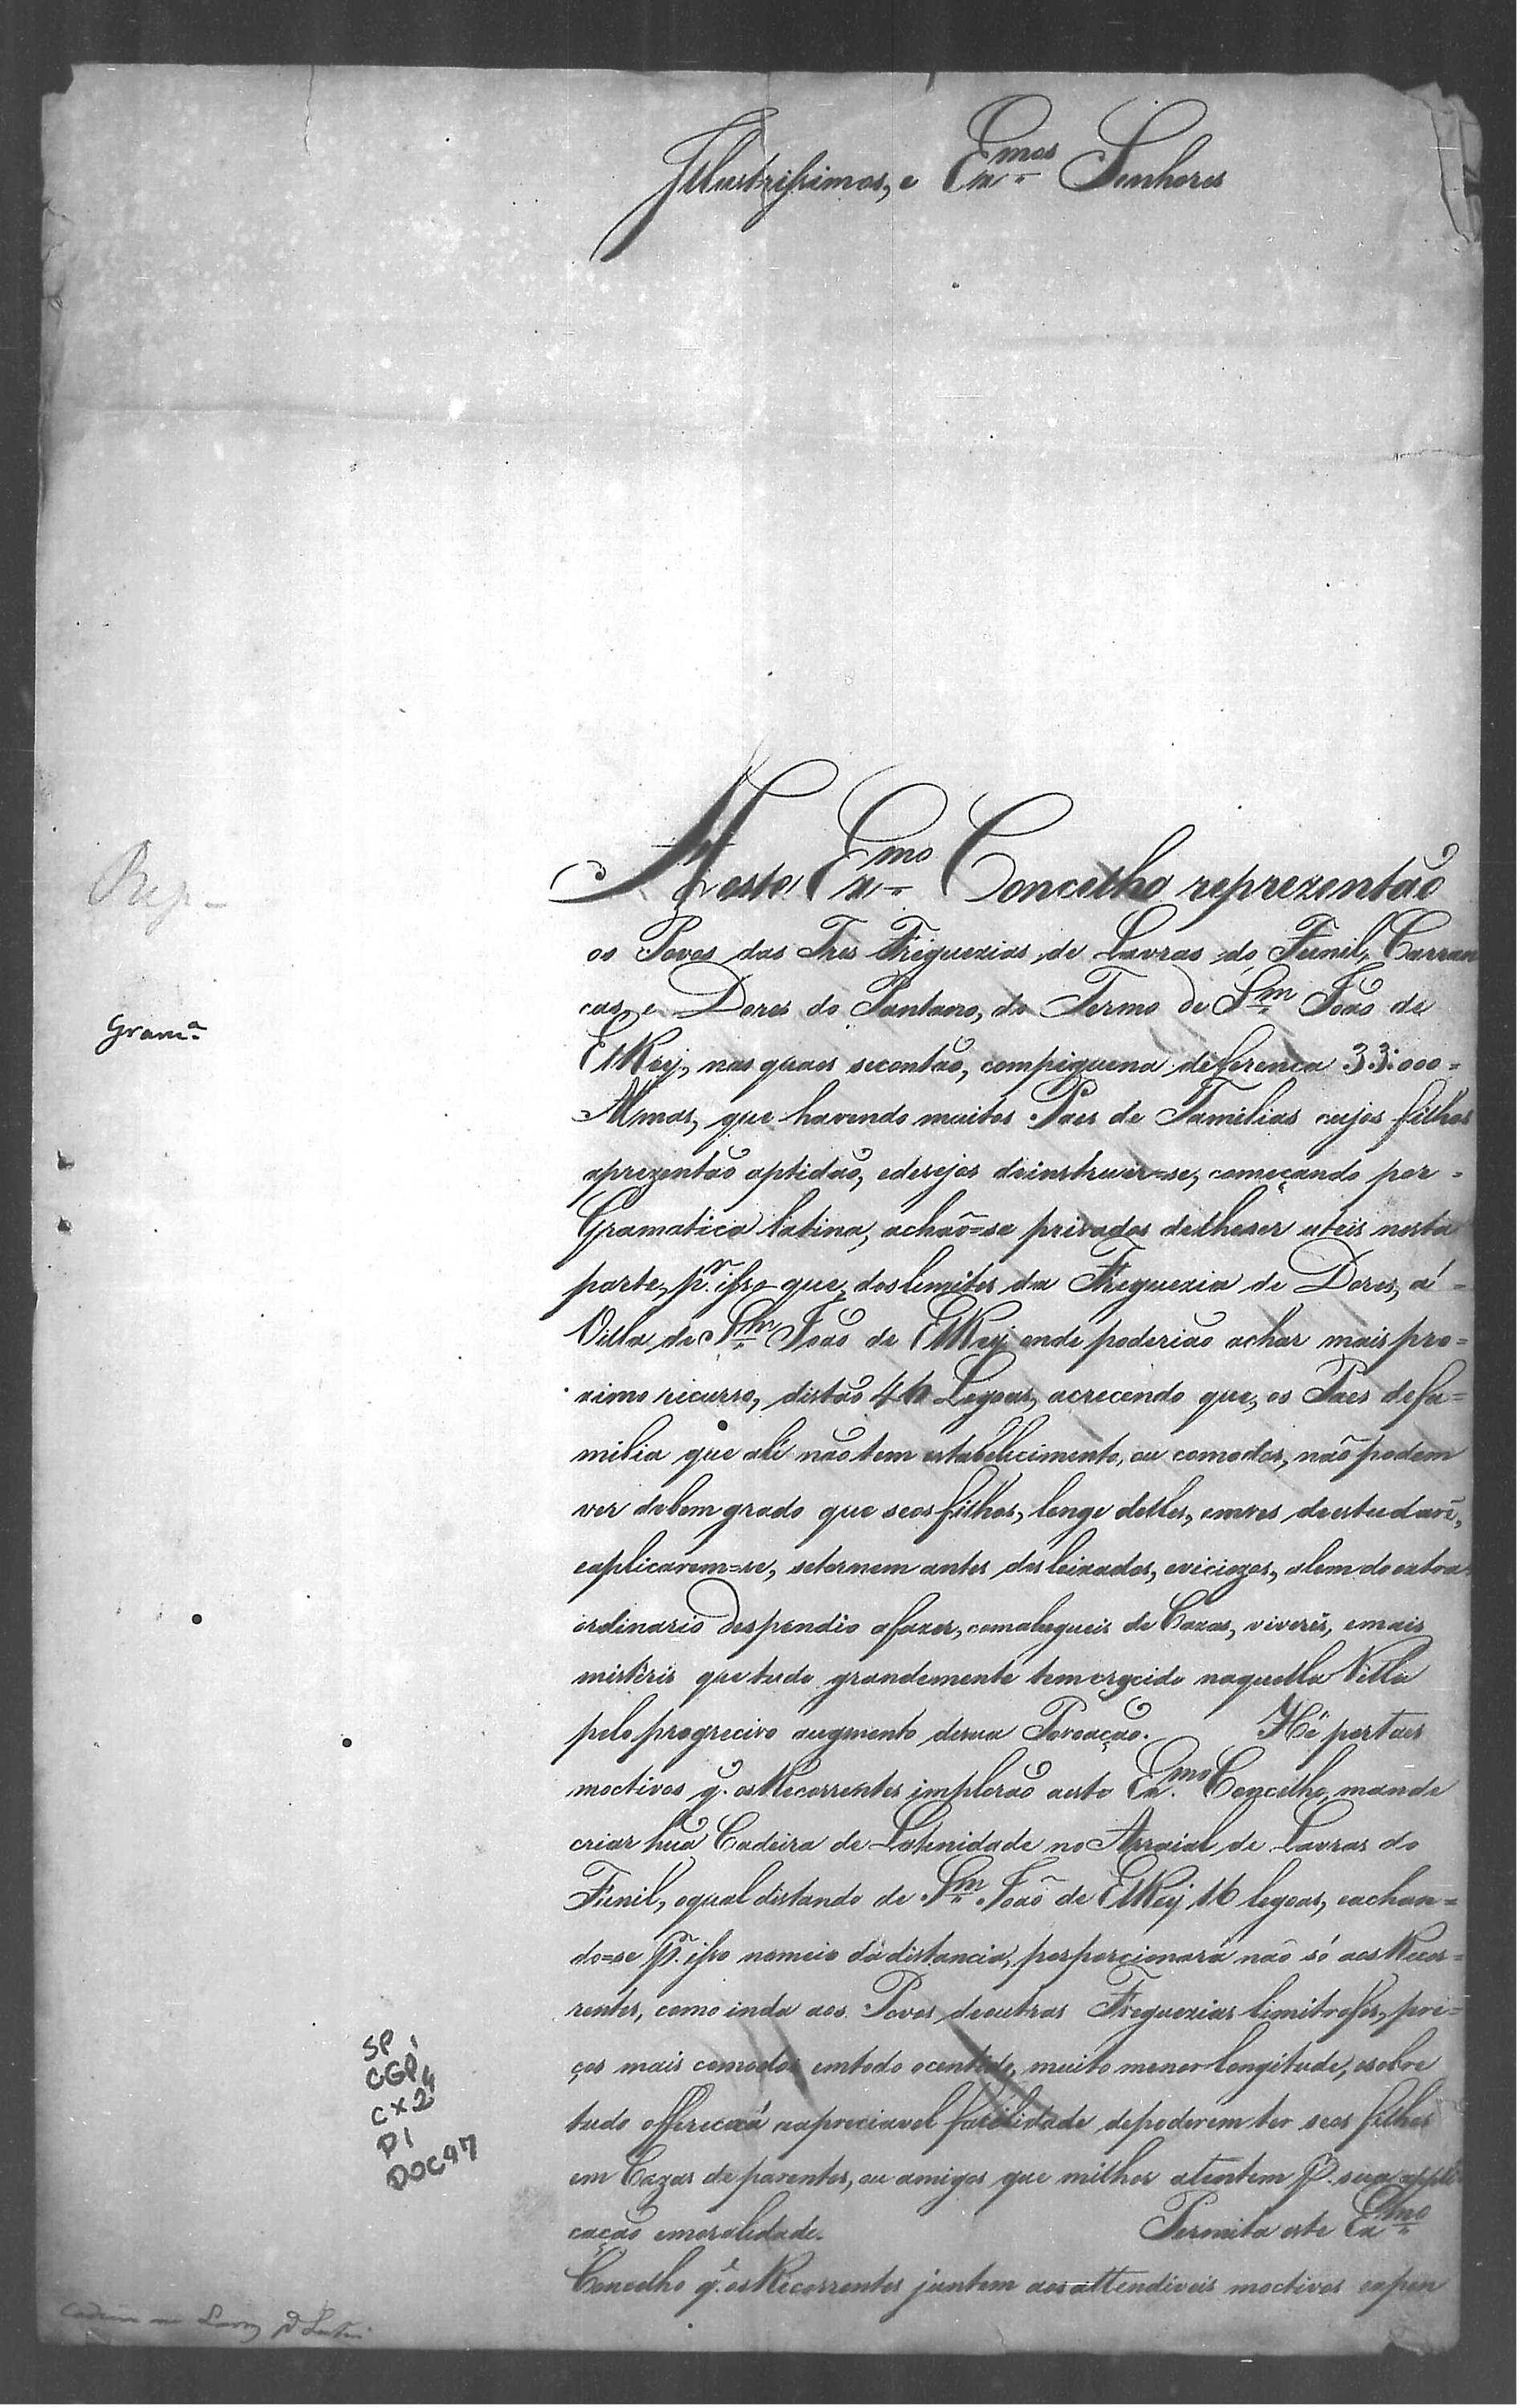 Illustrissimos, e Ex.mos Senhores
A este Ex.mo Concelho reprezentão
os Povos das Tres Freguezias de Lavras do Funil, Carran
cas, e Dores do Pantano, do Termo de S.m João de
ElRey, nas quaes secontão, compiquena deferença 33:000=
Almas, que havendo muitos Paes de Familias cujos filhos
aprezentão aptidão, edesejos deinstruir=se, começando por=
Gramatica latina, achaõ=se privados delheser uteis nesta
parte, p.r isso que, doslimites da Freguezia de Dores, á=
Villa de S.m João de ElRey onde poderião achar mais pro=
ximo recurso, distão 40 Legoas, acrecendo que, os Paes defa=
milia que ali não tem estabelecimento, ou comodos, não podem
ver debom grado que seos filhos, longe delles, emves deestudarẽ,
eaplicarem=se, setornem antes desleixados, eviciozos, alem do extra
ordinario despendio afazer, comalugueis de Cazas, viveris, emais
misteris que tudo grandemente temcrecido naquella Villa
pelo progrecivo augmento desua Povoação. Hé portaes
moctivos q. osRecorrentes implorão aeste Ex.mo Concelho, mande
criar huã Cadeira de Latinidade no Arraial de Lavras do
Funil, oqual distando de S.m João de ElRey 16 legoas, eachan=
do=se p.r isso nomeio dadistancia, porporcionará não só aosRecor=
rentes, como inda aos Povos deoutras Freguezias limitrofes, pre=
ços mais comodos emtodo ocentido, muito menor longitude, esobre
tudo offerecerá aapreciavel facilidade depoderem ter seos filhos
em Cazas de parentes, ou amigos que milhor atentem p.r sua appli
cação emoralidade. Permita este Ex.mo
Concelho q. osRecorrentes juntem aosattendiveis moctivos expen
Rep=
Gram.a
SP 1
CGP4
CX2
P1
DOC97